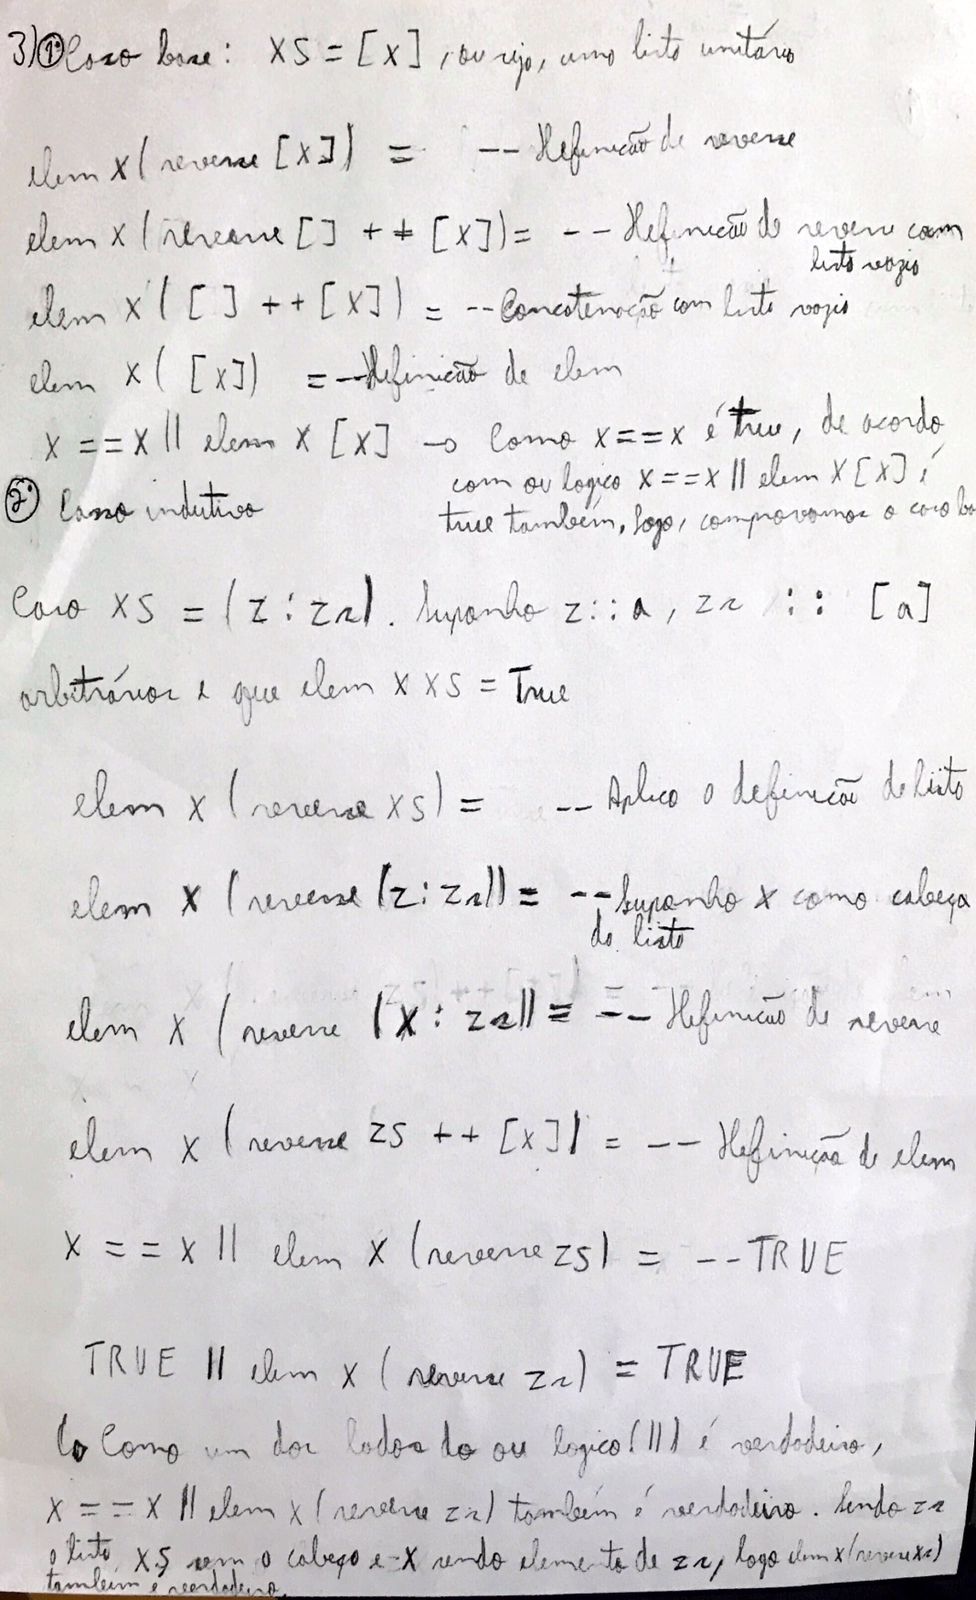 3) 1º Caso base: XS = [X], ou seja, uma lista unitária
elem X (reverse [X]) = -- Definição de reverse
elem X (reverse [] ++ [X]) = -- Definição de reverse com lista vazia
elem X ([] ++ [X]) = -- Concatenação com lista vazia
elem X ([X]) = -- Definição de elem
X == X || elem X [X] → Como X==X é true, de acordo
com ou logico X==X || elem X [X] é
true também, logo, comprovamos o caso ba
2º Caso indutivo
Caso XS = (z:zs). Suponha z::a, zs :: [a]
arbitrários e que elem X XS = True
elem X (reverse XS) = -- Aplico a definição de lista
elem X (reverse (z:zs)) = -- Suponha X como cabeça
da lista
elem X (reverse (X:zs)) = -- Definição de reverse
elem X (reverse ZS ++ [X]) = -- Definição de elem
X == X || elem X (reverse ZS) = -- TRUE
TRUE || elem X (reverse zs) = TRUE
↳ Como um dos lados do ou logico (||) é verdadeiro,
X == X || elem X (reverse zs) também é verdadeiro. Sendo zs
a lista XS sem a cabeça e X sendo elemento de zs, logo elem X (reverse xs)
também é verdadeiro.